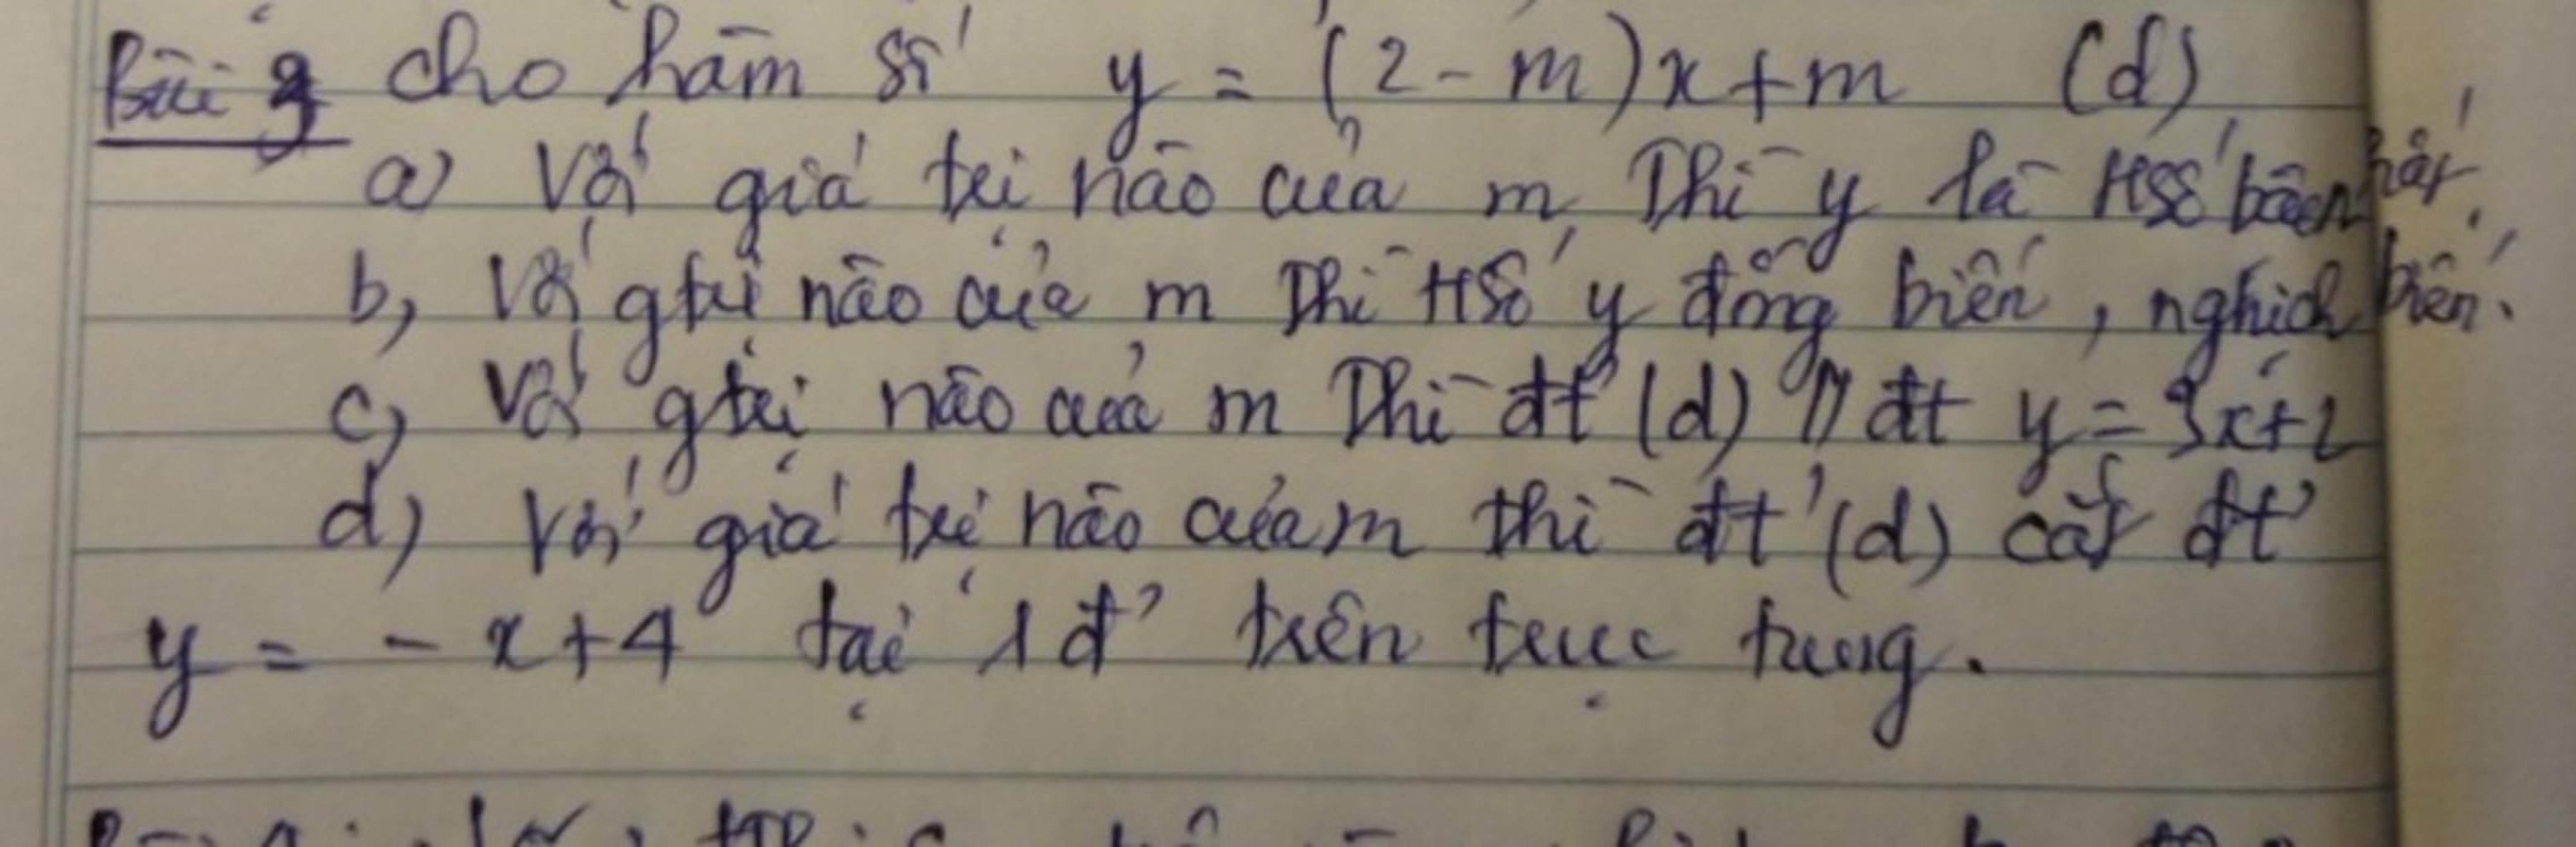 Bài 9 cho hàm số y = (2-m)x+m (d)
a) Với giá trị nào của m thì y là HSố bậc nhất.
b, Với gtrị nào của m thì HSố y đồng biến, nghịch biến.
c, Với gtrị nào của m thì đt (d) // đt y = 3x+2
d) Với giá trị nào của m thì đt (d) cắt đt
y = - x+4 tại 1 đ' trên trục tung.